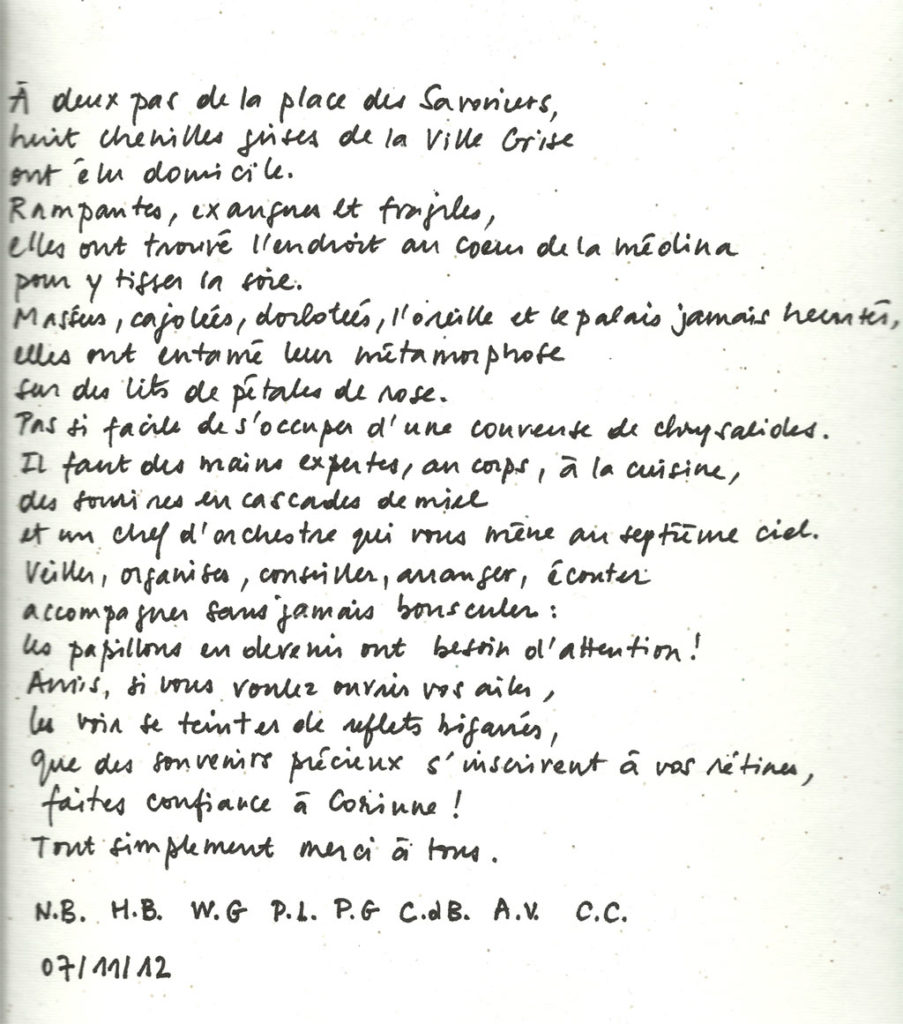 À deux pas de la place des Savoniers,
huit chenilles grises de la Ville Grise
ont élu domicile.
Rampantes, exangues et fragiles,
elles ont trouvé l'endroit au coeur de la médina
pour y tisser la soie.
Massées, cajolées, dorlotées, l'oreille et le palais jamais heurtés,
elles ont entamé leur métamorphose
sur des lits de pétales de rose.
Pas si facile de s'occuper d'une couveuse de chrysalides.
Il faut des mains expertes, au corps, à la cuisine,
des sourires en cascades de miel
et un chef d'orchestre qui vous mène au septième ciel.
Veiller, organiser, conseiller, arranger, écouter
accompagner sans jamais bousculer :
les papillons en devenir ont besoin d'attention !
Amis, si vous voulez ouvrir vos ailes,
les voir se teinter de reflets bigarrés,
que des souvenirs précieux s'inscrivent à vos rétines,
faites confiance à Corinne !
Tout simplement merci à tous.
N.B. H.B. W.G P.L. P.G C.dB. A.V. C.C.
07/11/12